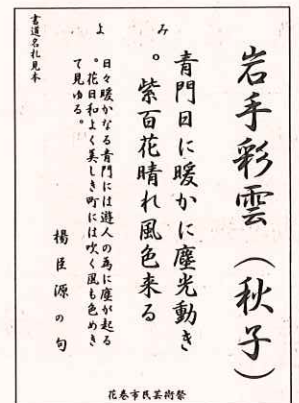 岩手彩雲(秋子)
青門日に暖かに塵光動き
。紫百花晴れ風色来る
み
よ
日々暖かなる青門には遊人の為に塵が起る
。花日和よく美しき町には吹く風も色めき
て見ゆる。
楊臣源の句
書道名札見本
花巻市民芸術祭